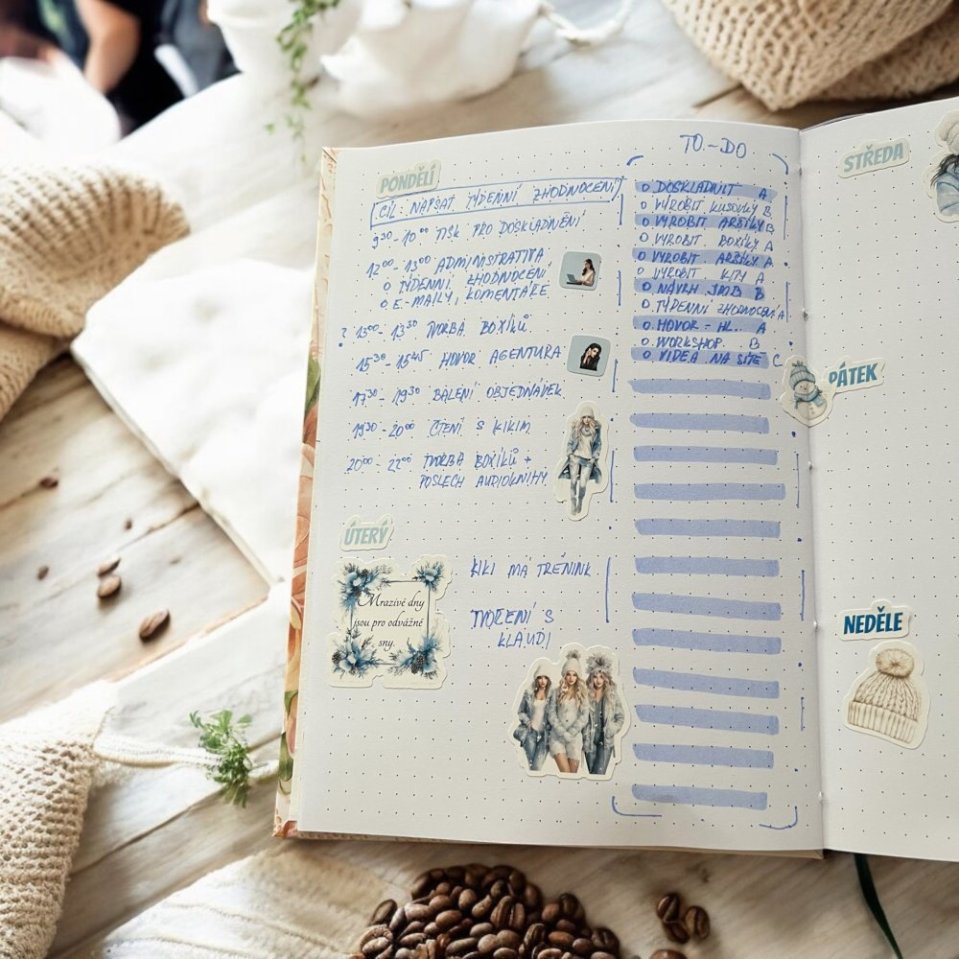 PONDĚLÍ
CÍL: NAPSAT TÝDENNÍ ZHODNOCENÍ
9³⁰-10⁰⁰ TISK PRO DOSKLADNĚNÍ
12⁰⁰-13⁰⁰ ADMINISTRATIVA
O TÝDENNÍ ZHODNOCENÍ
O E-MAILY, KOMENTÁŘE
? 13⁰⁰-13³⁰ TVORBA BOXÍKŮ
15³⁰-15⁴⁵ HOVOR AGENTURA
17³⁰-19³⁰ BALENÍ OBJEDNÁVEK
19³⁰-20⁰⁰ ČTENÍ S KIKIM
20⁰⁰-22⁰⁰ TVORBA BOXÍKŮ +
POSLECH AUDIOKNIHY
ÚTERÝ
Mrazivé dny
jsou pro odvážné
sny.
KIKI MÁ TRÉNINK
TVOŘENÍ S
KLAUDI
TO-DO
O DOSKLADNIT A
O VYROBIT KUSOVKY B
O VYROBIT ARŠÍKY B
O VYROBIT BOXÍKY A
O VYROBIT ARŠÍKY A
O VYROBIT KITY A
O NÁVRH B
O TÝDENNÍ ZHODNOCENÍ A
O HOVOR - HL.. A
O WORKSHOP. B
O VIDEA NA SÍTĚ C
STŘEDA
PÁTEK
NEDĚLE